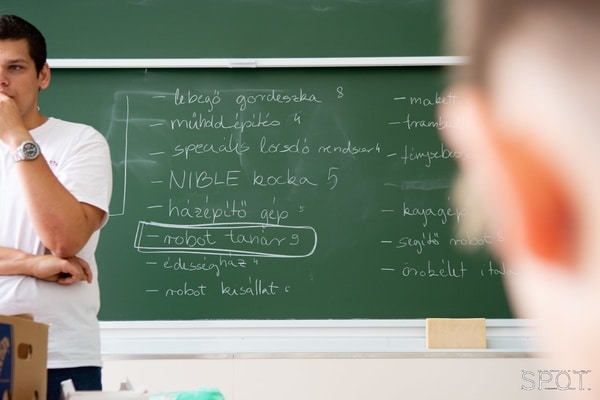 – lebegő gördeszka 8
– műhold építés 4
– speciális locsoló rendszer 4
– NIBLE kocka 5
– házépítő gép 5
– robot tanár 9
– édességház 4
– robot kisállat
– makett
–
–
– kajagép
– segítő robot
– örökélet
SPOT